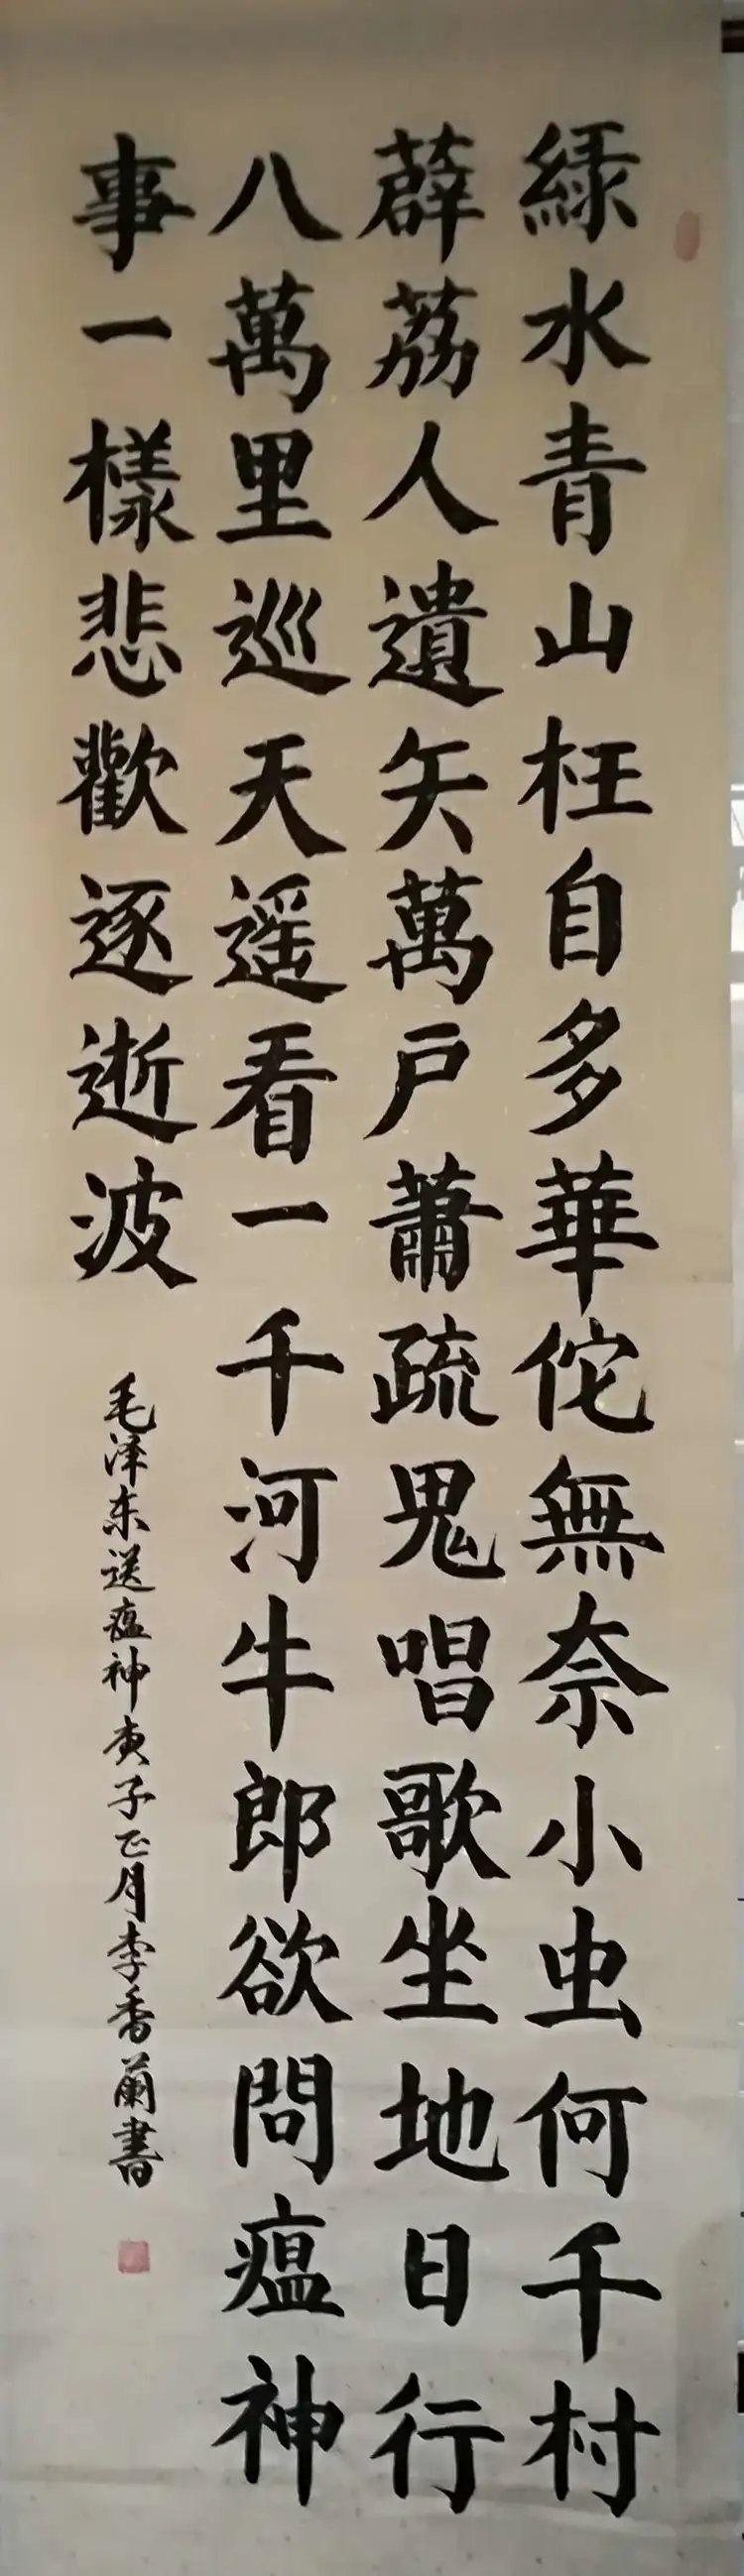 綠水青山枉自多華佗無奈小虫何千村
薜荔人遺矢萬户蕭疏鬼唱歌坐地日行
八萬里巡天遥看一千河牛郎欲問瘟神
事一樣悲歡逐逝波
毛泽东送瘟神庚子正月李香蘭書